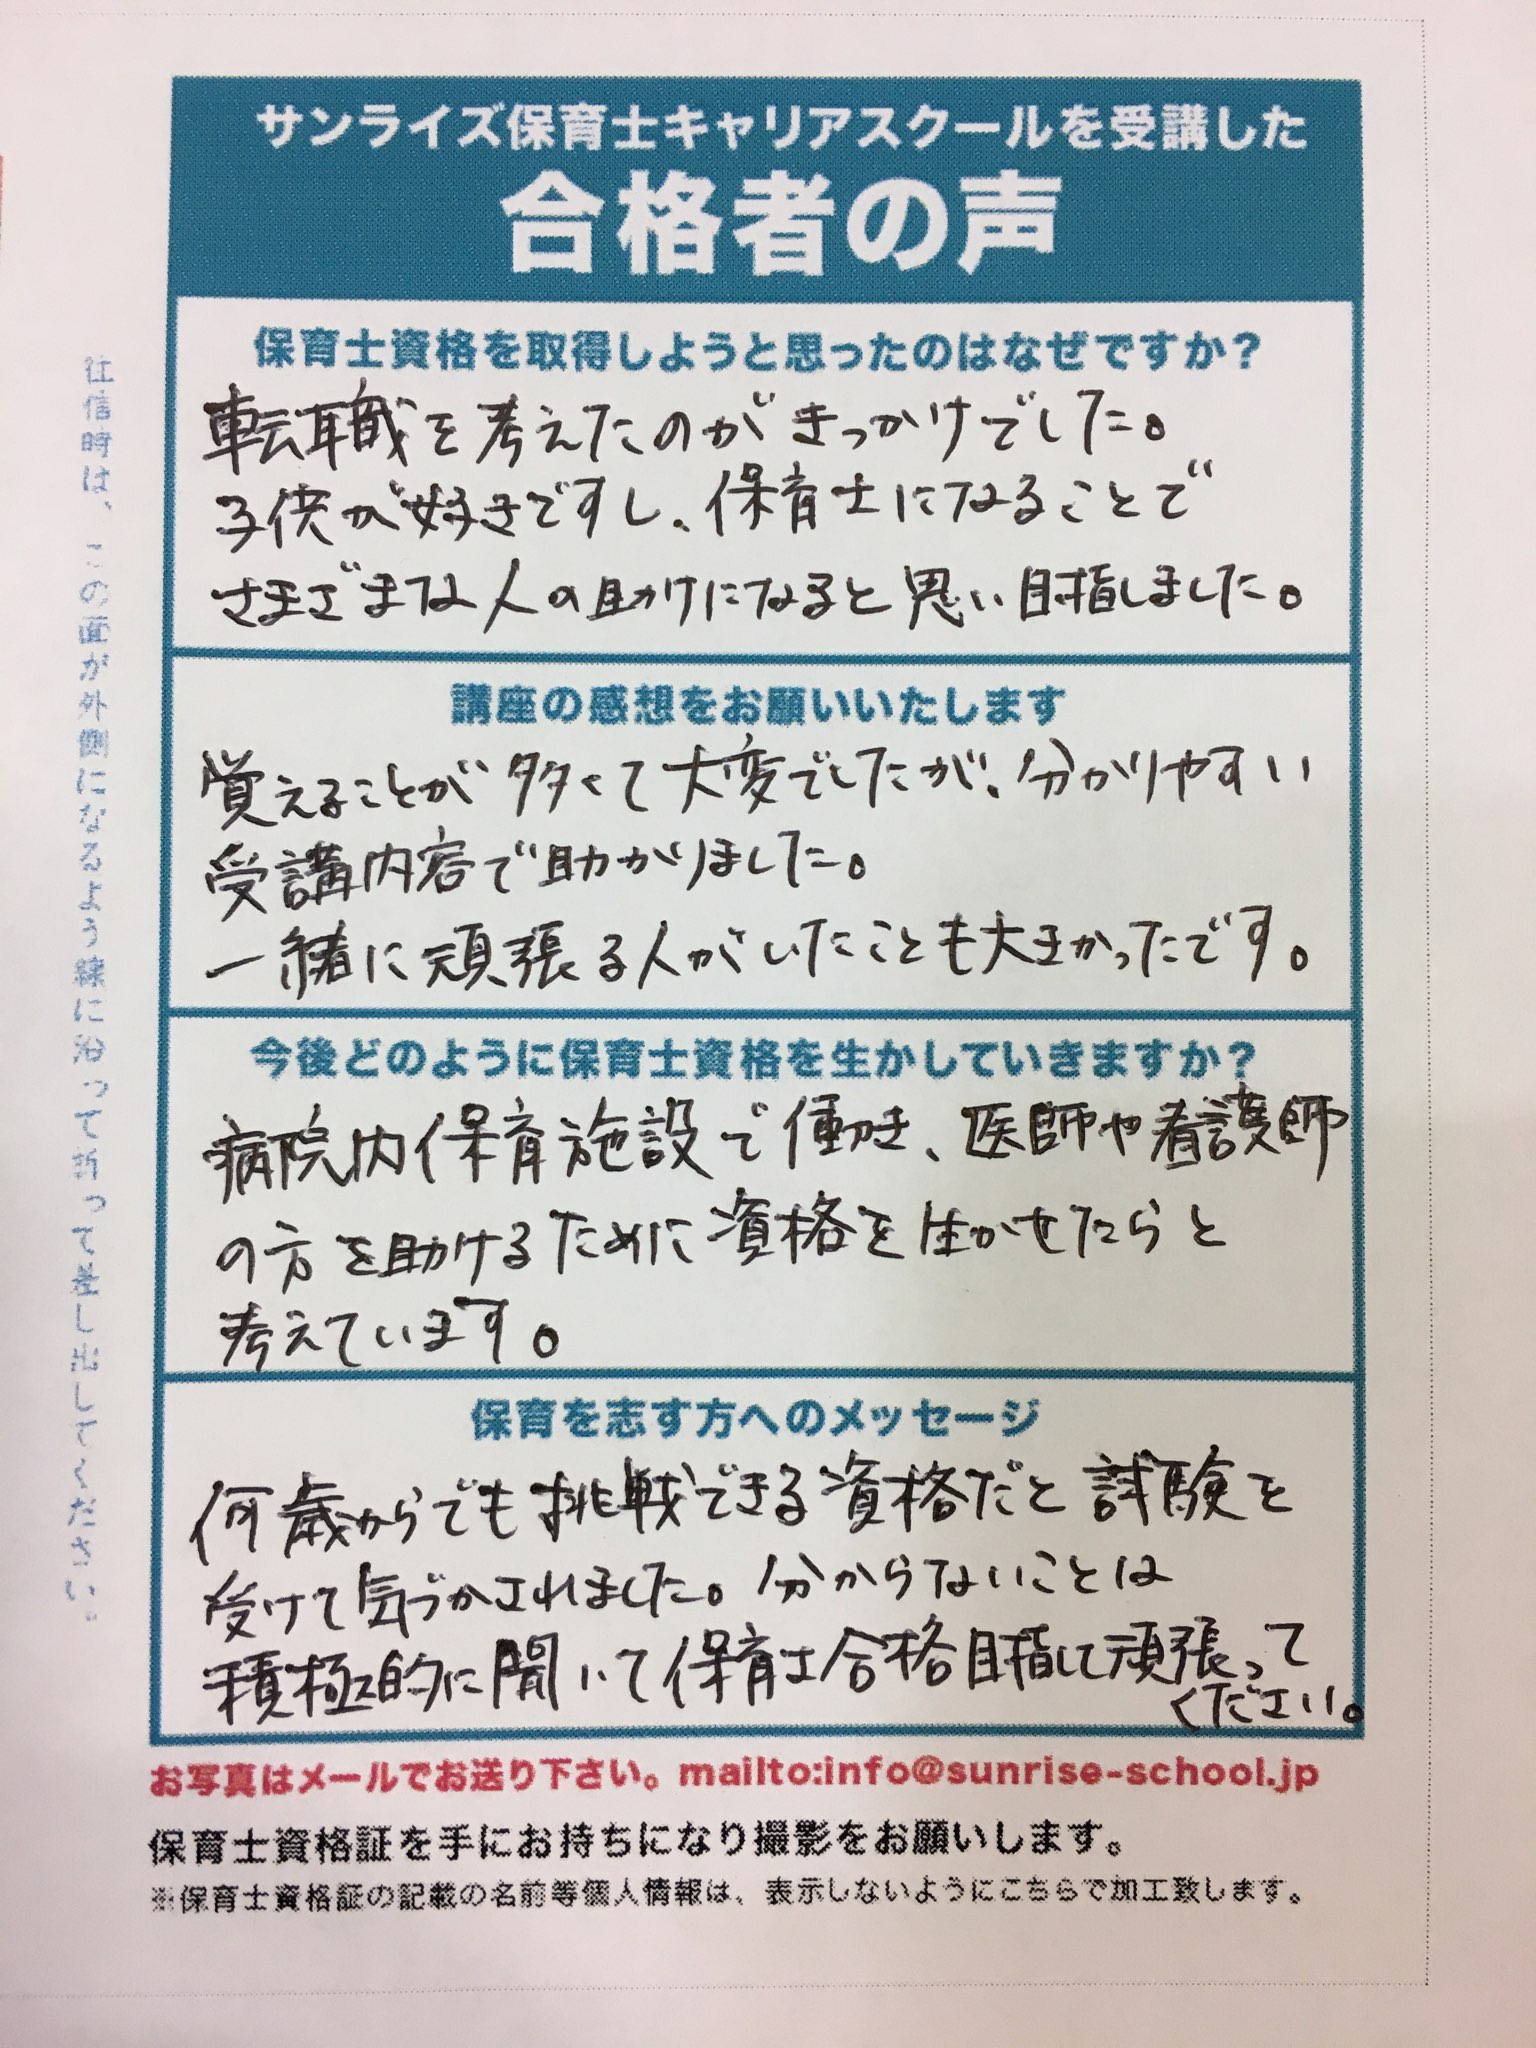 サンライズ保育士キャリアスクールを受講した
合格者の声
保育士資格を取得しようと思ったのはなぜですか？
転職を考えたのがきっかけでした。
子供が好きですし、保育士になることで
さまざまな人の助けになると思い目指しました。
講座の感想をお願いいたします
覚えることが多くて大変でしたが、分かりやすい
受講内容で助かりました。
一緒に頑張る人がいたことも大きかったです。
今後どのように保育士資格を生かしていきますか？
病院内保育施設で働き、医師や看護師
の方を助けるために資格を生かせたらと
考えています。
保育を志す方へのメッセージ
何歳からでも挑戦できる資格だと試験を
受けて気づかされました。分からないことは
積極的に聞いて保育士合格目指して頑張って
ください。
お写真はメールでお送り下さい。mailto:info@sunrise-school.jp
保育士資格証を手にお持ちになり撮影をお願いします。
※保育士資格証の記載の名前等個人情報は、表示しないようにこちらで加工致します。
往信時は、この面が外側になるよう線に沿って折って差し出してください。